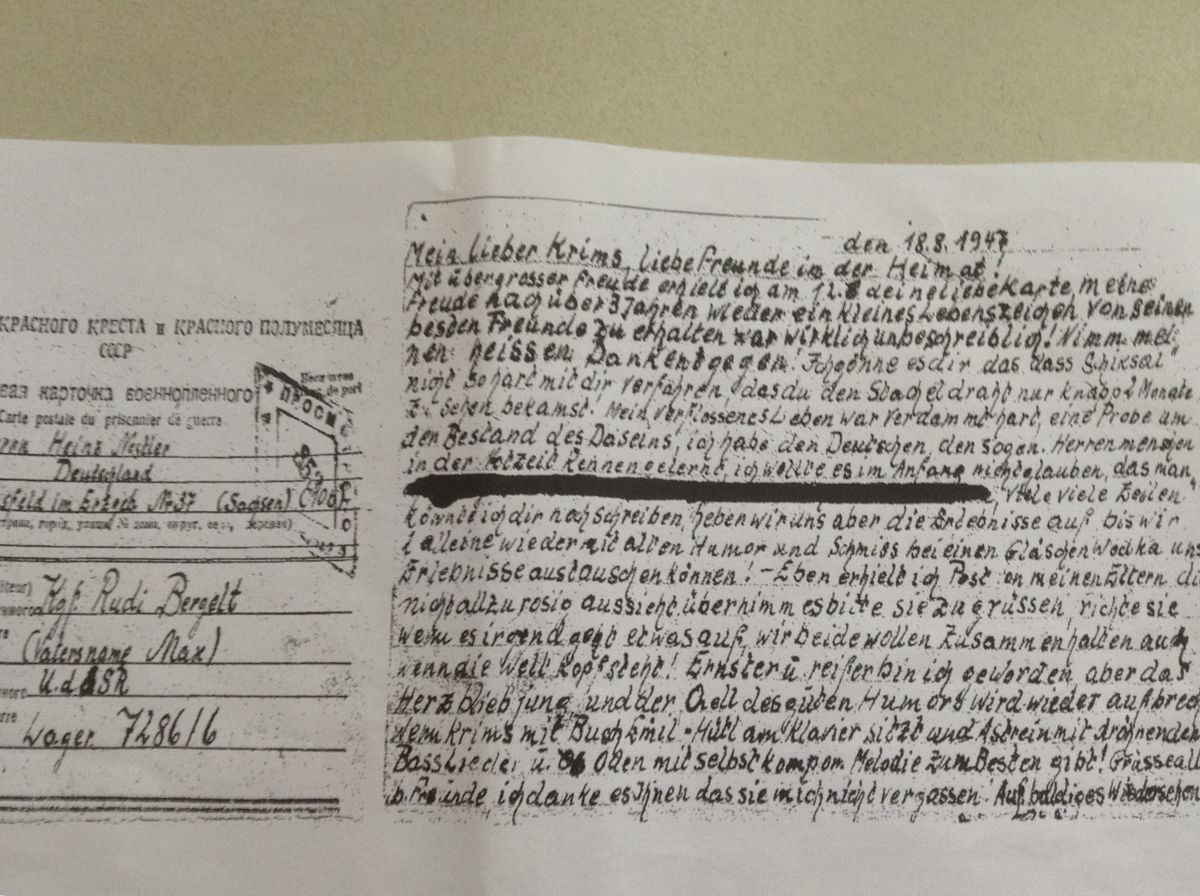 КРАСНОГО КРЕСТА и КРАСНОГО ПОЛУМЕСЯЦА
СССР
карточка военнопленного
Carte postale du prisonnier de guerre
Heinz Nestler
Deutschland
sfeld im Erzgeb Nr 37 (Sachsen)
Kgf. Rudi Bergelt
(Vatersname Max)
UdSSR
Lager 7286/6
den 18.8.1947
Mein lieber Krims, liebe Freunde in der Heimat!
Mit übergrosser Freude erhielt ich am 12.8 deine liebe Karte, meine
Freude nach über 3 Jahren wieder ein kleines Lebenszeichen von seinen
besten Freunde zu erhalten war wirklich unbeschreiblich! Nimm mei-
nen heissen Dank entgegen! Ich gönne es dir das dass Schiksal
nicht so hart mit dir verfahren, das du den Stacheldraht nur knapp 2 Monate
zu sehen bekamst! Mein verflossenes Leben war verdammt hart, eine Probe um
den Bestand des Daseins, ich habe den Deutschen, den sogen. Herrenmenschen
in der Notzeit kennen gelernt, ich wollte es im Anfang nicht glauben, das man
Viele viele Zeilen
könnte ich dir noch schreiben, heben wir uns aber die Erlebnisse auf bis wir
alleine wieder mit alten Humor und Schmiss bei einen Gläschen Wodka uns
Erlebnisse austauschen können! – Eben erhielt ich Post von meinen Eltern di
nich allzu rosig aussieht, übernimm es bitte sie zu grüssen, richte sie
wenn es irgend geht etwas auf, wir beide wollen zusammenhalten auch
wenn die Welt Kopf steht! Ernster u. reifer bin ich geworden aber das
Herz blieb jung und der Qell des guten Humors wird wieder aufbrech
wenn Krims mit Buch Emil - Hütl am Klavier sitzt und Astrein mit dröhnenden
Bass Lieder u. Oden mit selbst kompon. Melodie zum Besten gibt! Grüsse all
Freunde ich danke es Ihnen das sie mich nicht vergassen! Auf baldiges Wiedersehen